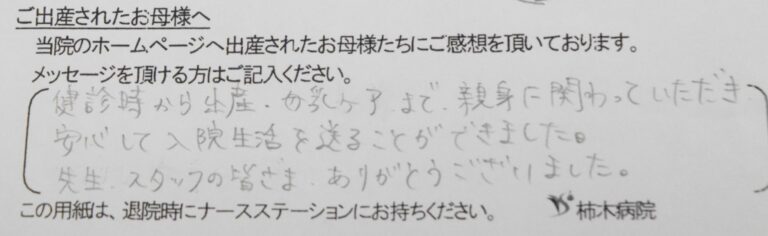 ご出産されたお母様へ
当院のホームページへ出産されたお母様たちにご感想を頂いております。
メッセージを頂ける方はご記入ください。
健診時から出産・母乳ケアまで、親身に関わっていただき
安心して入院生活を送ることができました。
先生、スタッフの皆さま、ありがとうございました。
この用紙は、退院時にナースステーションにお持ちください。 柿木病院